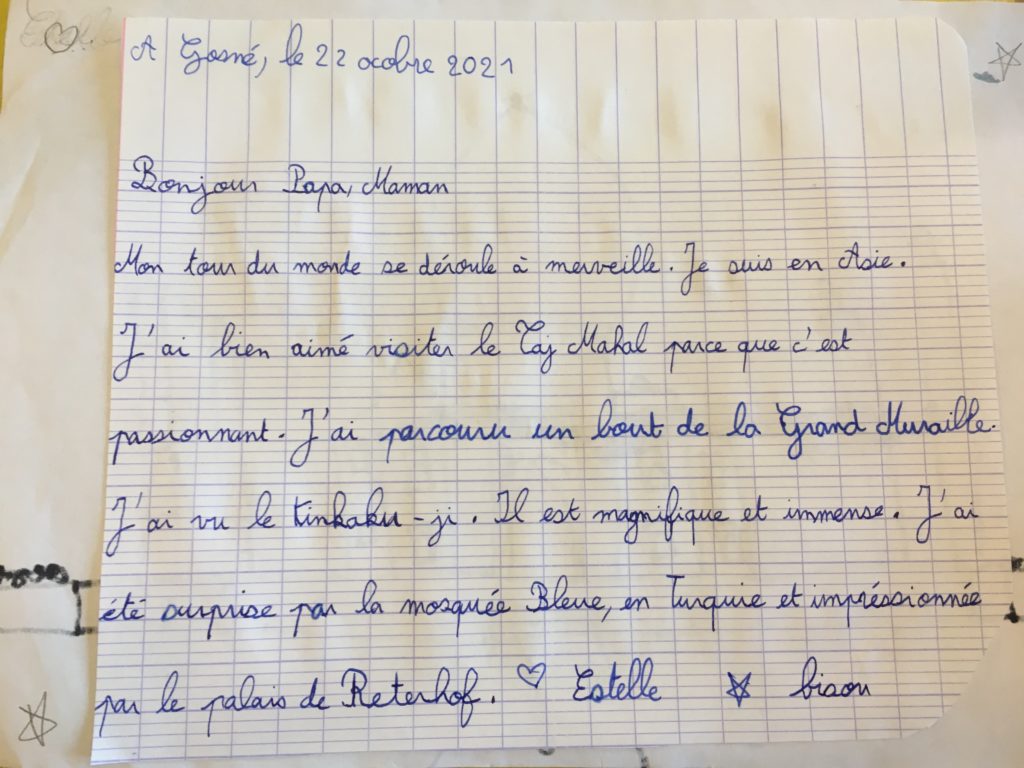 Estelle
A Gosné, le 22 octobre 2021
Bonjour Papa, Maman
Mon tour du monde se déroule à merveille. Je suis en Asie.
J'ai bien aimé visiter le Taj Mahal parce que c'est
passionnant. J'ai parcouru un bout de la Grand Muraille.
J'ai vu le Kinkaku-ji. Il est magnifique et immense. J'ai
été surprise par la mosquée Bleue, en Turquie et impréssionnée
par le palais de Reterhof. Estelle bisou